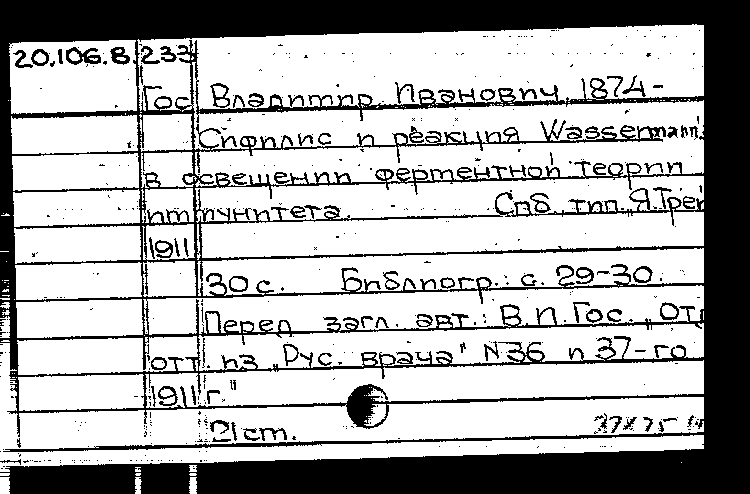 20.106.8.233
Гос Владимир Иванович, 1874-
Сифилис и реакция Wassermann
в освещении ферментной теории
иммунитета. Спб., тип. „Я.Трей
1911
30 с. Библиогр.: с. 29-30.
Перед загл. авт.: В.И.Гос. „Отд
отт. из „Рус. врача" N36 и 37-го
1911 г."
21 cm.